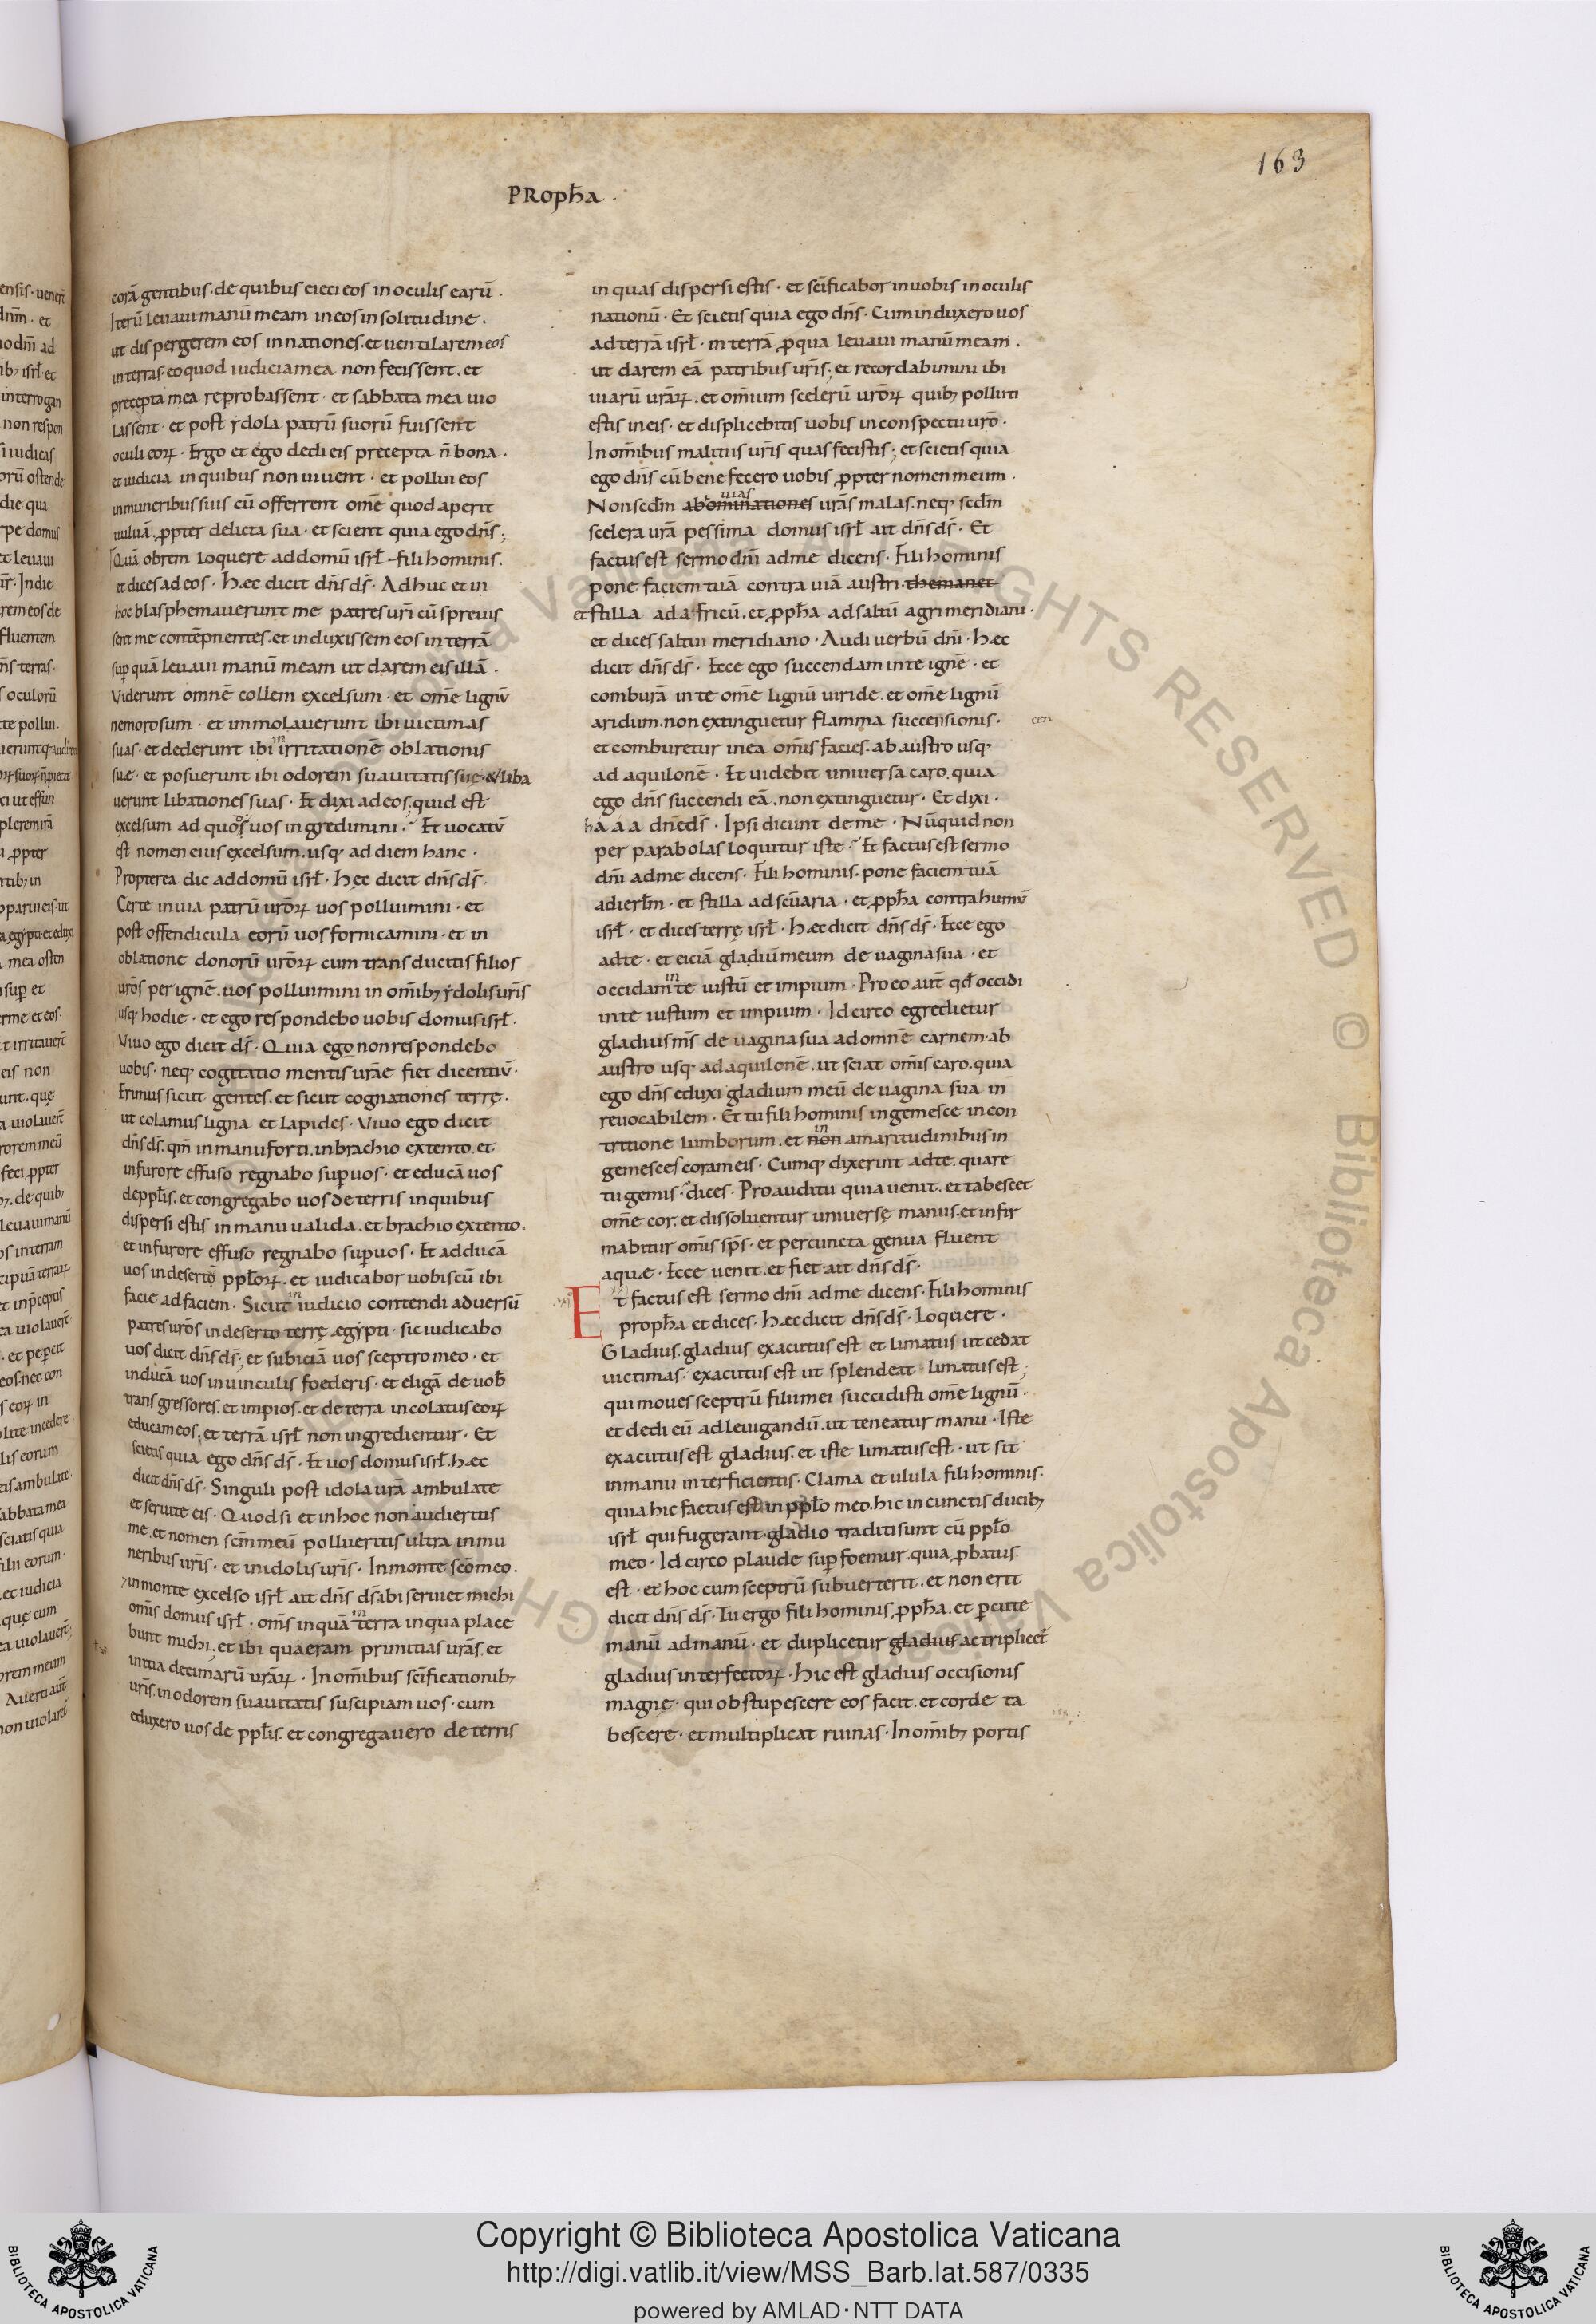 163
PRoph̄a .
corā gentibus. de quibus eieci eos in oculis earū .
Iterū levavi manū meam in eos in solitudine .
ut dispergerem eos in nationes. et ventilarem eos
in terras. eo quod iudicia mea non fecissent. et
precepta mea reprobassent · et sabbata mea vio
lassent · et post ydola patrū suorū fuissent
oculi eoꝝ · Ergo et ego dedi eis precepta n̄ bona .
et iudicia in quibus non vivent · et pollui eos
in muneribus suis cū offerrent om̄e quod aperit
vulvā. ꝓpter delicta sua · et scient quia ego dn̄s ;
Quā obrem loquere ad domū isrł · fili hominis .
et dices ad eos · Hæc dicit dn̄s ds̄ · Adhuc et in
hoc blasphemaverunt me patres vr̄i cū sprevis
sent me contēpnentes. et induxissem eos in terrā
suꝑ quā levavi manū meam ut darem eis illā .
Viderunt omnē collem excelsum · et om̄e lignū
nemorosum · et immolaverunt ibi victimas
suas · et dederunt ibi in irritationē oblationis
suę · et posuerunt ibi odorem suavitatis suę · & liba
verunt libationes suas · Et dixi ad eos, quid est
excelsum ad quos vos ingredimini · Et vocatū
est nomen eius excelsum. usq· ad diem hanc .
Propterea dic ad domū isrł · Hęc dicit dn̄s ds̄.
Certe in via patrū vr̄oꝝ vos polluimini · et
post offendicula eorū vos fornicamini · et in
oblatione donorū vr̄oꝝ cum transducitis filios
vr̄os per ignē. vos polluimini in om̄ib; ydolis vr̄is
usq· hodie · et ego respondebo vobis domus isrł .
Vivo ego dicit ds̄ · Quia ego non respondebo
vobis · neq· cogitatio mentis vr̄ae fiet dicentiū ·
Erimus sicut gentes. et sicut cognationes terrę .
ut colamus ligna et lapides · Vivo ego dicit
dn̄s ds̄. qm̄ in manu forti. in brachio extento. et
in furore effuso regnabo suꝑ vos · et educā vos
de pplis. et congregabo vos de terris in quibus
dispersi estis in manu valida. et brachio extento .
et in furore effuso regnabo suꝑ vos · Et adducā
vos in desertō pploꝝ. et iudicabor vobiscū ibi
facie ad faciem · Sicut in iudicio contendi adversū
patres vr̄os in deserto terrę ęgypti · sic iudicabo
vos dicit dn̄s ds̄; et subiciā vos sceptro meo · et
inducā vos in vinculis foederis · et eligā de vob̄
transgressores. et impios. et de terra incolatus eoꝝ
educam eos; et terrā isrł non ingredientur · Et
scietis quia ego dn̄s ds̄ · Et vos domus isrł. hæc
dicit dn̄s ds̄ · Singuli post idola vr̄a ambulate
et servite eis · Quod si et in hoc non audieritis
me. et nomen scm̄ meū polluertis ultra in mu
neribus vr̄is · et in idolis vr̄is · In monte scō meo .
in monte excelso isrł ait dn̄s ds̄. ibi serviet michi
om̄is domus isrł · om̄s inquā in terra in qua place
bunt michi, et ibi quaeram primitias vr̄as. et
initia decimarū vr̄aꝝ · In om̄ibus sc̄ificationib;
vr̄is. in odorem suavitatis suscipiam vos · cum
eduxero vos de pplis. et congregavero de terris
in quas dispersi estis · et sc̄ificabor in vobis in oculis
nationū · Et scietis quia ego dn̄s · Cum induxero vos
ad terrā isrł · in terrā ꝓ qua levavi manū meam .
ut darem eā patribus vr̄is; et recordabimini ibi
viarū vr̄aꝝ. et om̄ium scelerū vr̄oꝝ quib; polluti
estis in eis · et displicebitis vobis in conspectu vr̄o ·
In om̄ibus malitiis vr̄is quas fecistis ; et scietis quia
ego dn̄s cū bene fecero vobis ꝓpter nomen meum ·
vias
Non scdm̄ abominationes vr̄as malas. neq· scdm̄
scelera vr̄a pessima domus isrł ait dn̄s ds̄ · Et
factus est sermo dn̄i ad me dicens · Fili hominis
pone faciem tuā contra viā austri. themanet
et stilla ad africū. et ꝓph̄a ad saltū agri meridiani .
et dices saltui meridiano · Audi verbū dn̄i · Hæc
dicit dn̄s ds̄ · Ecce ego succendam in te ignē · et
comburā in te om̄e lignū viride. et om̄e lignū
aridum. non extinguetur flamma succensionis .
et comburetur in ea om̄is facies. ab austro usq·
ad aquilonē · Et videbit universa caro. quia
ego dn̄s succendi eā. non extinguetur · Et dixi ·
ha a a dn̄e ds̄ · Ipsi dicunt de me · Nūquid non
per parabolas loquitur iste · Et factus est sermo
dn̄i ad me dicens · Fili hominis. pone faciem tuā
ad ierłm · et stilla ad sc̄uaria · et ꝓph̄a contra humū
isrł · et dices terrę isrł · Hæc dicit dn̄s ds̄ · Ecce ego
ad te · et eiciā gladiū meum de vagina sua · et
occidam in te iustū et impium · Pro eo aut̄ qđ occidi
in te iustum et impium · Idcirco egredietur
gladius ms̄ de vagina sua ad omnē carnem. ab
austro usq· ad aquilonē. ut sciat om̄is caro. quia
ego dn̄s eduxi gladium meū de vagina sua in
revocabilem · Et tu fili hominis ingemesce in con
tritione lumborum. et in non amaritudinibus in
gemesces coram eis · Cumq· dixerint ad te. quare
tu gemis · dices · Pro auditu quia venit. et tabescet
om̄e cor. et dissolventur universę manus. et infir
mabitur om̄is sps̄ · et per cuncta genua fluent
aquæ · Ecce venit. et fiet. ait dn̄s ds̄ ·
Et factus est sermo dn̄i ad me dicens · Fili hominis
proph̄a et dices · Hæc dicit dn̄s ds̄ · Loquere .
Gladius. gladius exacutus est et limatus ut cedat
victimas · exacutus est ut splendeat · limatus est ;
qui moves sceptrū filii mei succidisti om̄e lignū .
et dedi eū ad levigandū. ut teneatur manu · Iste
exacutus est gladius. et iste limatus est · ut sit
in manu interficientis · Clama et ulula fili hominis .
quia hic factus est in pplo meo. hic in cunctis ducib;
isrł qui fugerant · gladio traditi sunt cū pplo
meo · Idcirco plaude suꝑ foemur. quia ꝓbatus
est · et hoc cum sceptrū subverterit. et non erit
dicit dn̄s ds̄ · Tu ergo fili hominis ꝓph̄a. et ꝑcute
manū ad manū · et duplicetur gladius ac triplicet̄
gladius interfectoꝝ · Hic est gladius occisionis
magne · qui obstupescere eos facit. et corde ta
bescere · et multiplicat ruinas · In om̄ib; portis
Copyright © Biblioteca Apostolica Vaticana
http://digi.vatlib.it/view/MSS_Barb.lat.587/0335
powered by AMLAD·NTT DATA
BIBLIOTECA APOSTOLICA VATICANA
BIBLIOTECA APOSTOLICA VATICANA